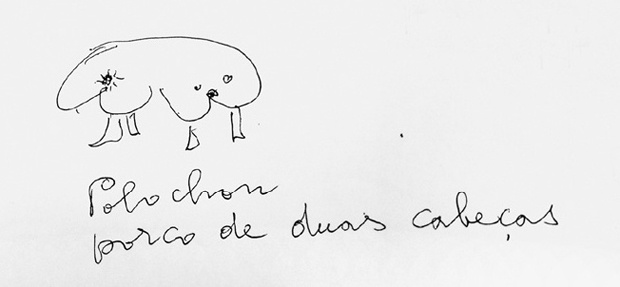 Polochon
porco de duas cabeças